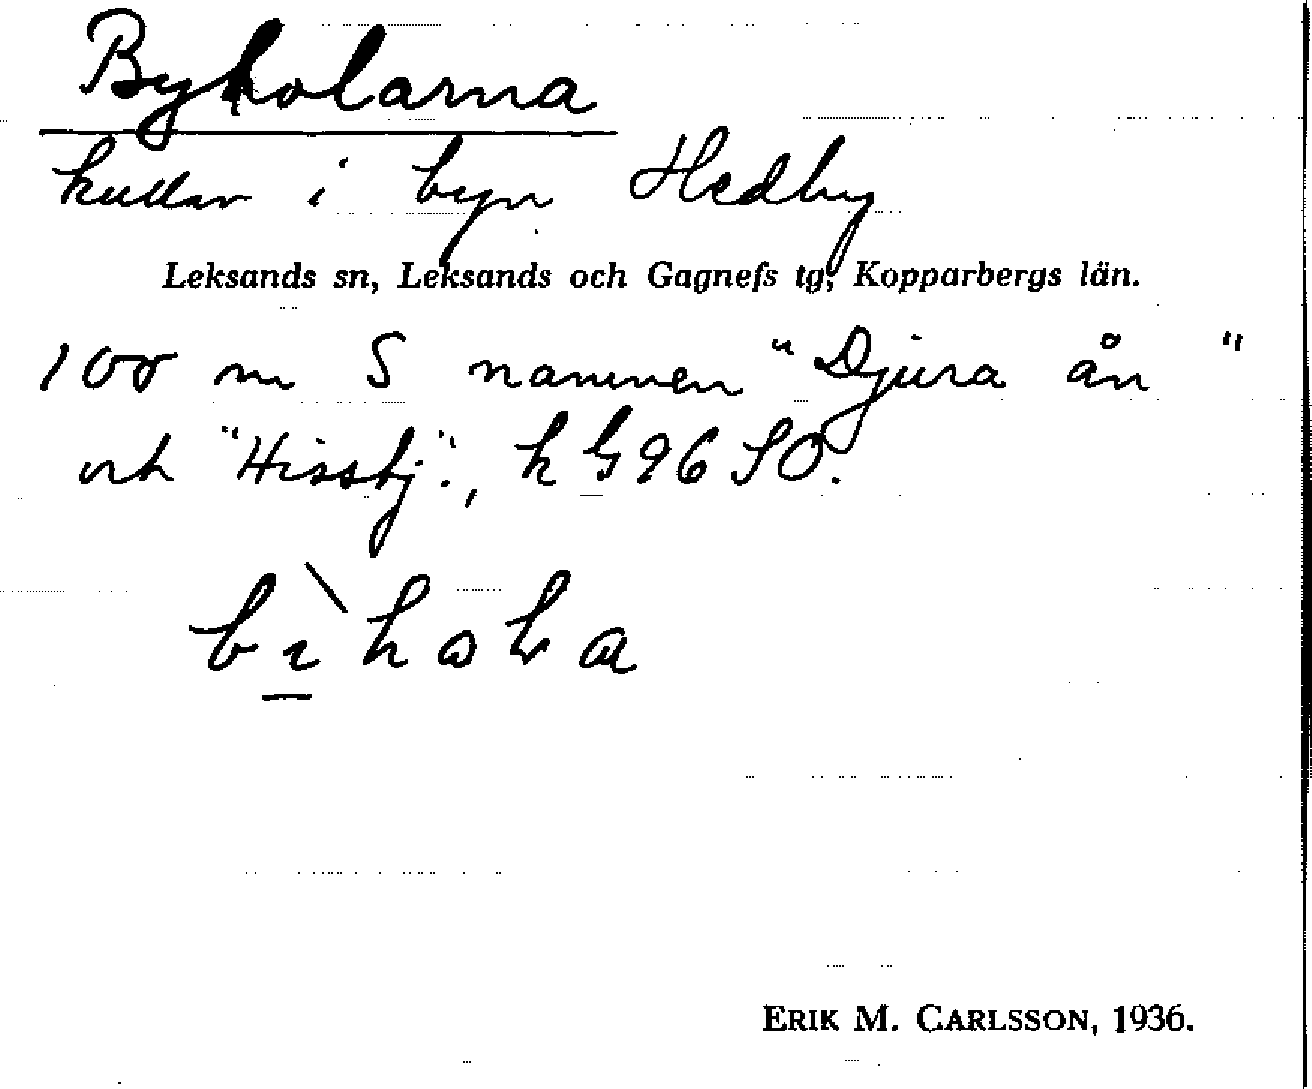 Byholarna
kullar i byn Hedby
Leksands sn, Leksands och Gagnefs tg, Kopparbergs län.
100 m S namnen "Djura ån"
och "Hissbj.", k G 96 SO.
ERIK M. CARLSSON, 1936.